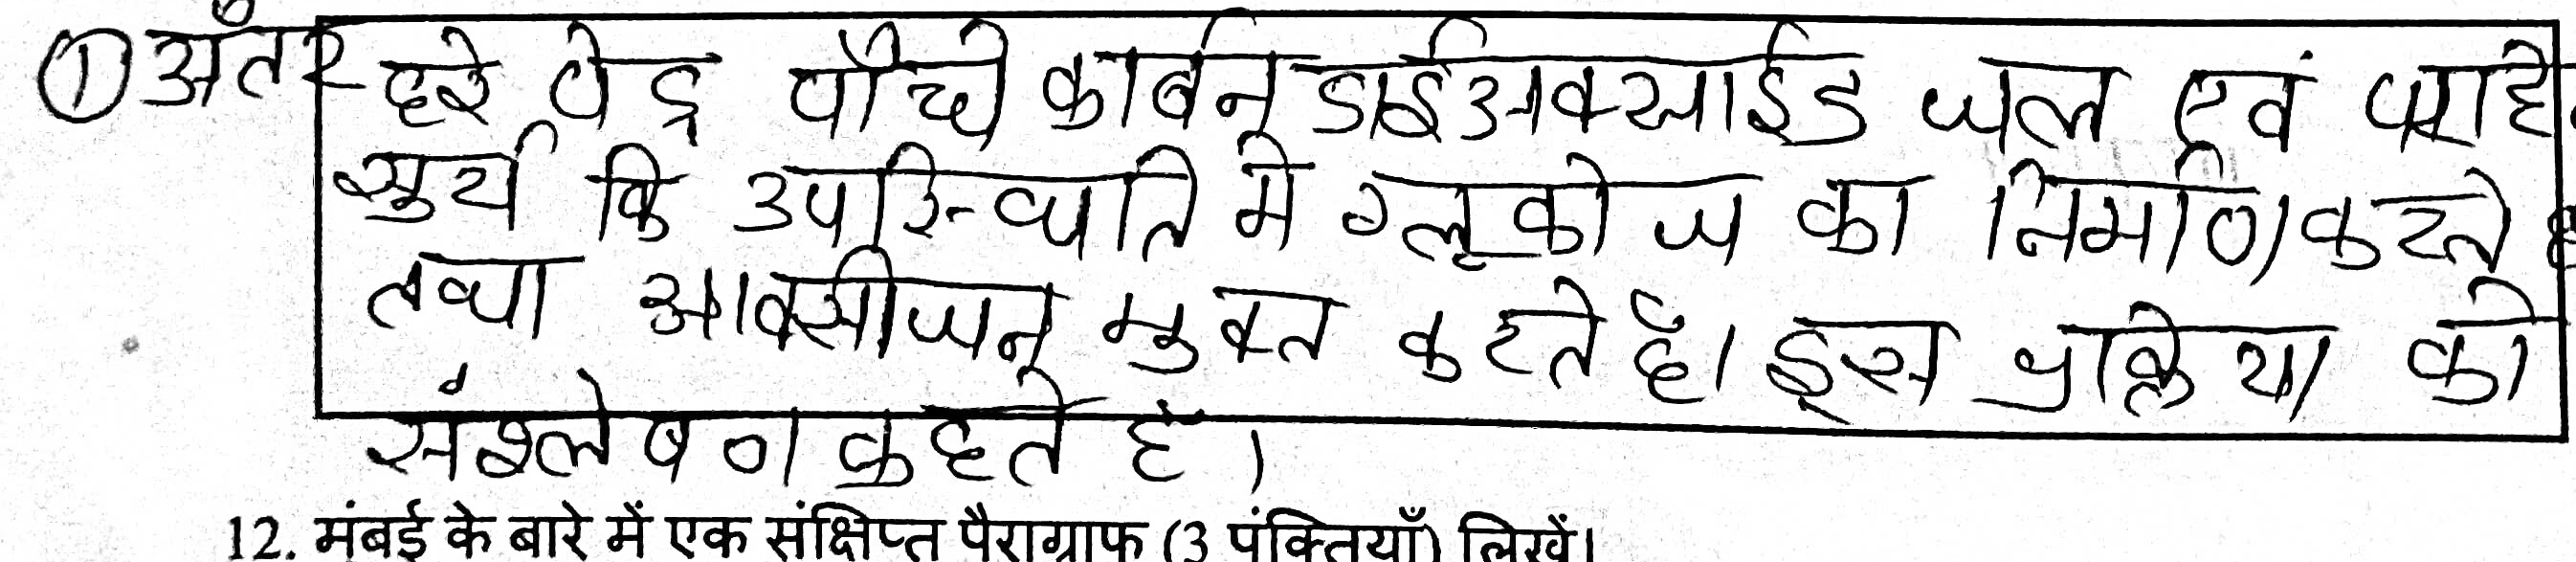 ① अँतर हरे पेड़ पौधे कार्बन डाईआक्साईड जल एवं
सुर्य कि उपस्थिति मे ग्लूकोज का निर्माण करते
तथा आक्सीजन मुक्त करते हैं। इस प्रक्रिया को
संश्लेषण कहते हैं।
12. मुंबई के बारे में एक संक्षिप्त पैराग्राफ (3 पंक्तियाँ) लिखें।